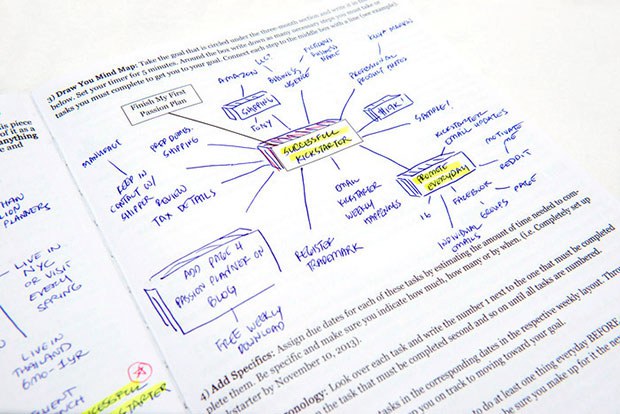 3) Draw You Mind Map: Take the goal that is circled under the three-month section and write it in the
below. Set your timer for 5 minutes. Around the box write down as many necessary steps you must take or
tasks you must complete to get you to your goal. Connect each step to the middle box with a line (see example).
Finish My First
Passion Plan
AMAZON
LIST
BUSINESS
LICENSE
BUSINESS
NAME
PROFESSIONAL
PRODUCT PHOTOS
SHIPPING
TONY
PREP DOMES.
SHIPPING
KEEP IN
CONTACT W/
SHIPPER
REVIEW
TAX DETAILS
SUCCESSFUL
KICKSTARTER
SAMPLE!
KICKSTARTER
EMAIL UPDATES
MOTIVATE
ME
REDDIT
PROMOTE
EVERYDAY
PAGE
FACEBOOK
GROUPS
IG
INDIVIDUAL
EMAILS
EMAIL
KICKSTARTER
WEEKLY
HAPPENINGS
REGISTER
TRADEMARK
ADD PAGE 4
PASSION PLANNER ON
BLOG
FREE WEEKLY
DOWNLOAD
4) Add Specifics: Assign due dates for each of these tasks by estimating the amount of time needed to com-
plete them. Be specific and make sure you indicate how much, how many or by when. (i.e. Completely set up
Kickstarter by November 10, 2013).
onology: Look over each task and write the number 1 next to the one that must be completed
the task that must be completed second and so on until all tasks are numbered.
tasks in the corresponding dates in the respective weekly layout.
ep you on track to moving toward your goal.
to do at least one thing everyday BEFORE
be sure you make up for it the
is piece
of it as a
anything
e and
PLANNERS
LIVE IN
NYC
OR VISIT
EVERY
SPRING
LIVE IN
THAILAND
6MO-1YR
SUCCESSFUL
KICKSTARTER